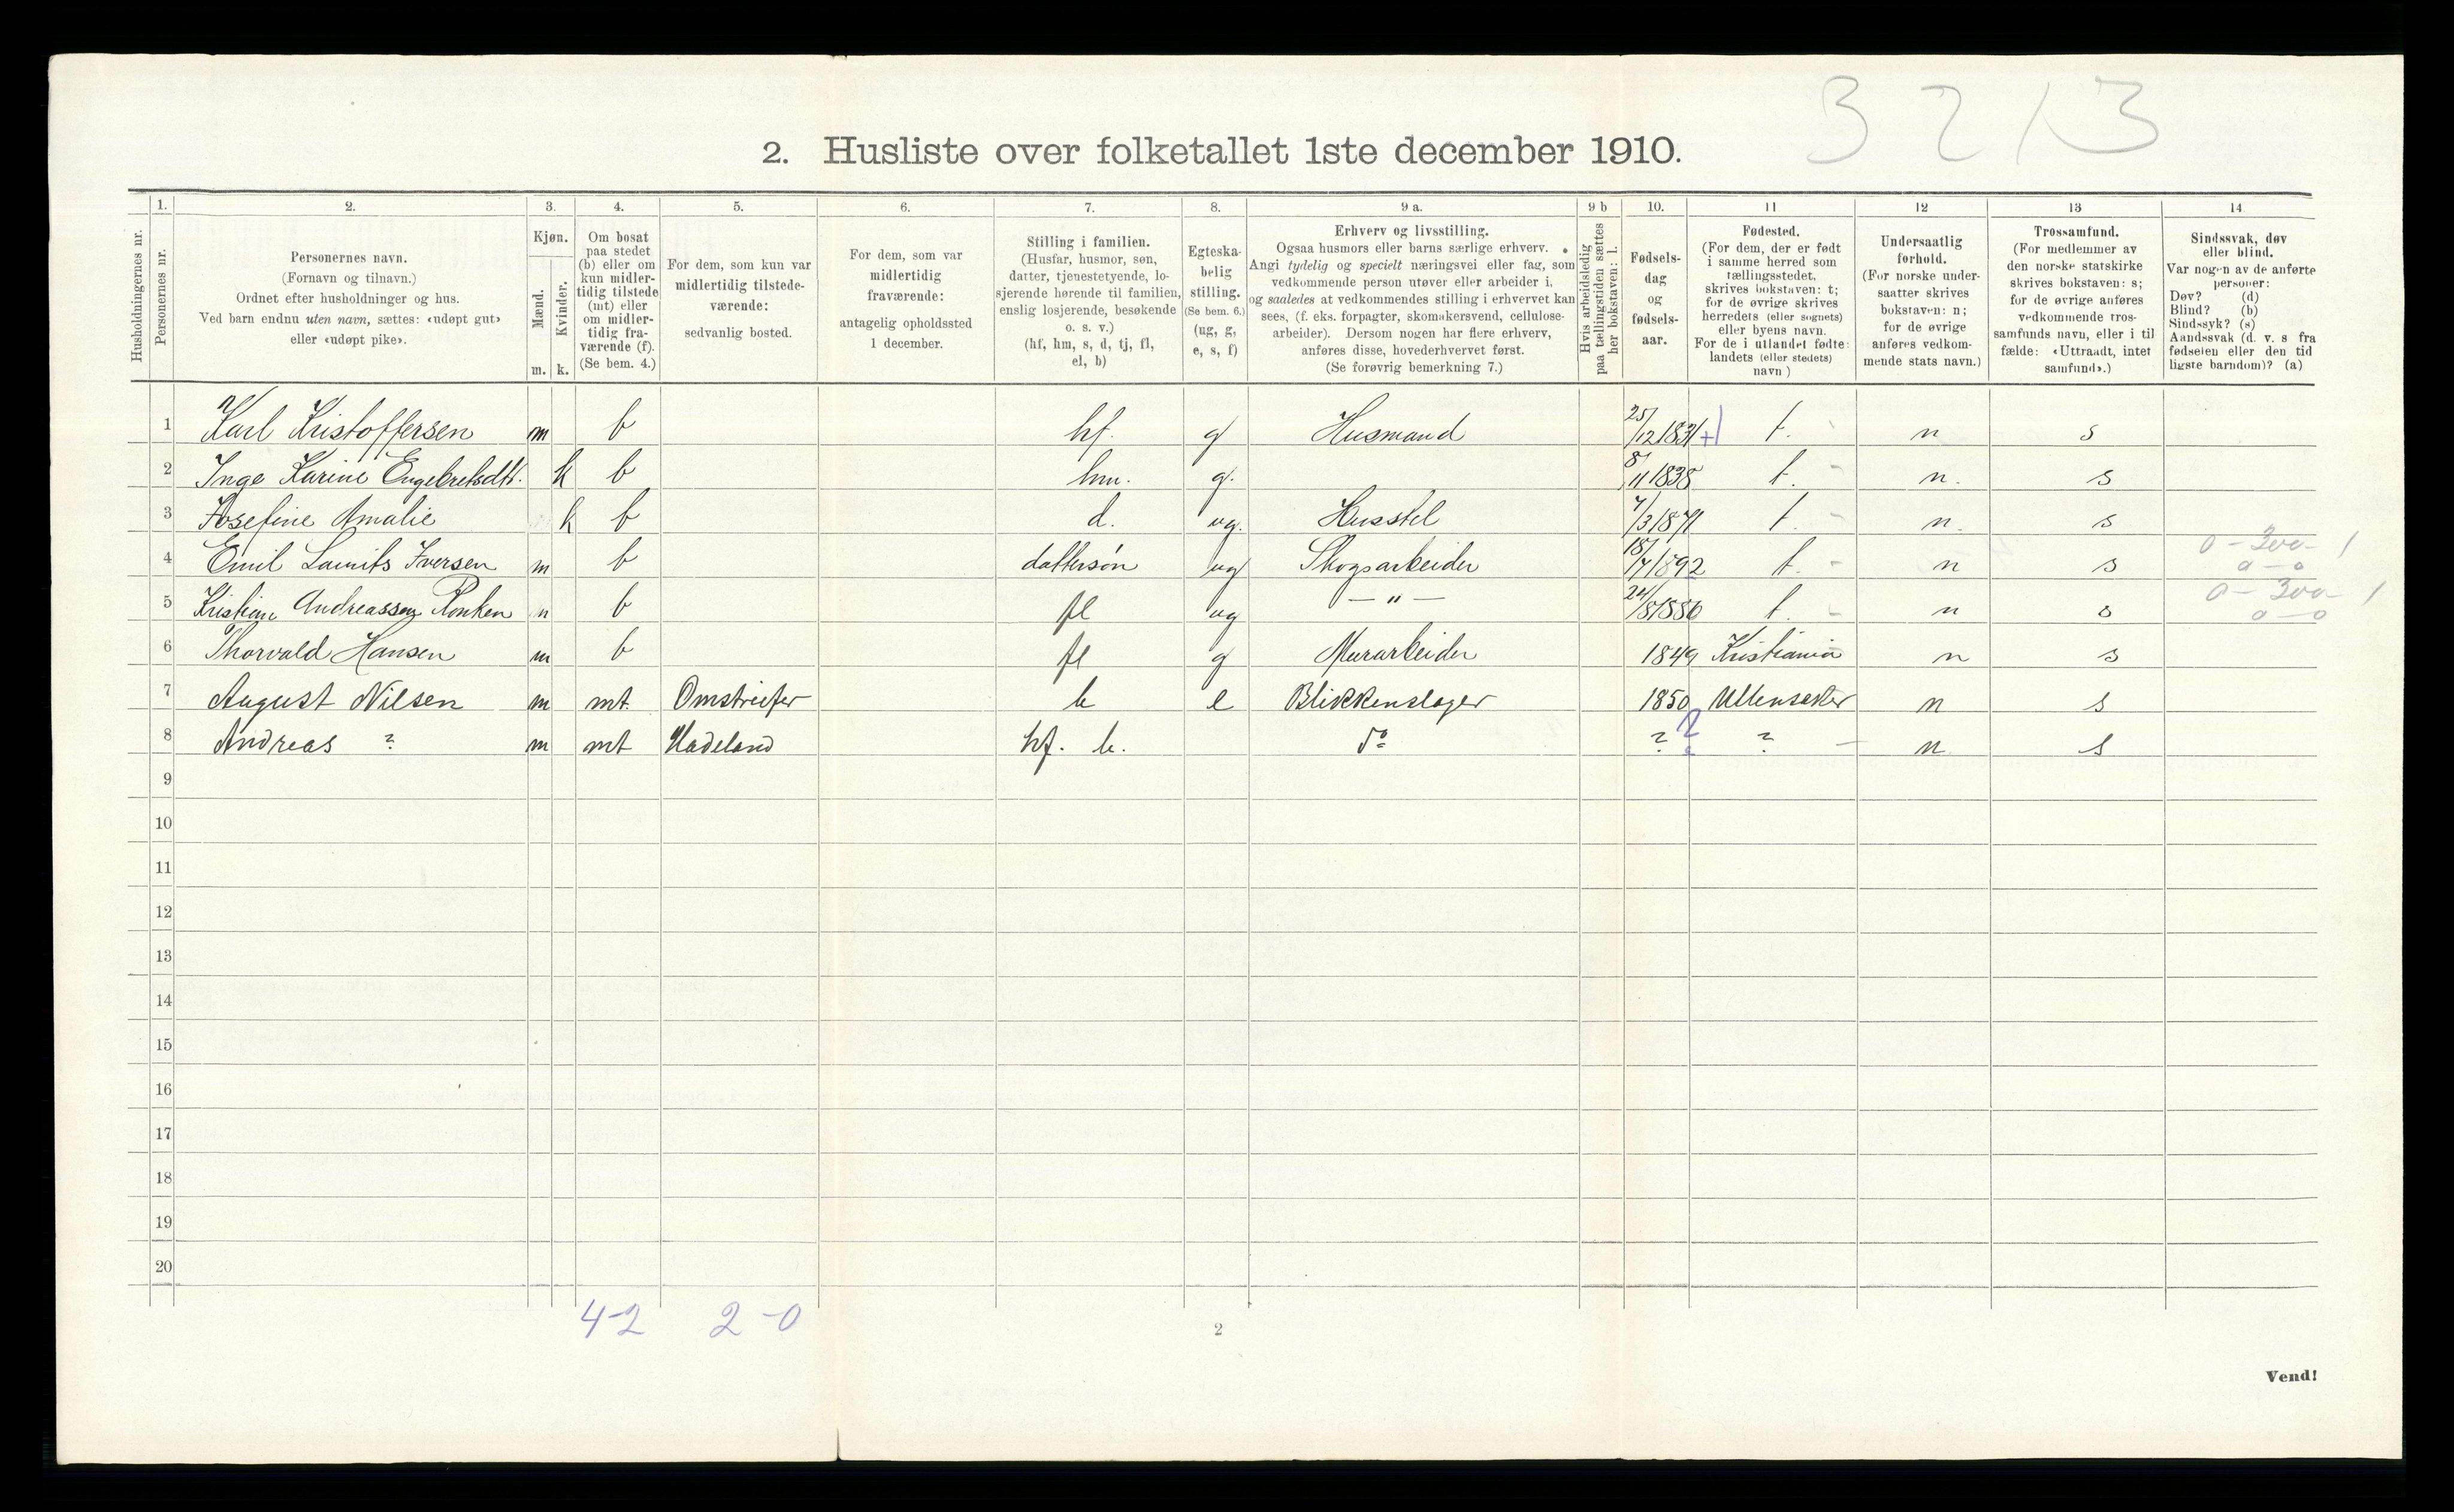 3 2 1 3
2. Husliste over folketallet 1ste december 1910.
1. 2. 3. 4. 5. 6. 7. 8. 9 a. 9 b 10. 11 12 13 14
Husholdningernes nr.
Personernes nr.
Personernes navn.
(Fornavn og tilnavn.)
Ordnet efter husholdninger og hus.
Ved barn endnu uten navn, sættes: «udøpt gut»
eller «udøpt pike».
Kjøn.
Mænd.
Kvinder.
m. k.
Om bosat
paa stedet
(b) eller om
kun midler-
tidig tilstede
(mt) eller
om midler-
tidig fra-
værende (f).
(Se bem. 4.)
For dem, som kun var
midlertidig tilstede-
værende:
sedvanlig bosted.
For dem, som var
midlertidig
fraværende:
antagelig opholdssted
1 december.
Stilling i familien.
(Husfar, husmor, søn,
datter, tjenestetyende, lo-
sjerende hørende til familien,
enslig losjerende, besøkende
o. s. v.)
(hf, hm, s, d, tj, fl,
el, b)
Egteska-
belig
stilling.
(Se bem. 6.)
(ug, g,
e, s, f)
Erhverv og livsstilling.
Ogsaa husmors eller barns særlige erhverv.
Angi tydelig og specielt næringsvei eller fag, som
vedkommende person utøver eller arbeider i,
og saaledes at vedkommendes stilling i erhvervet kan
sees, (f. eks. forpagter, skomakersvend, cellulose-
arbeider). Dersom nogen har flere erhverv,
anføres disse, hovederhvervet først.
(Se forøvrig bemerkning 7.)
Hvis arbeidsledig
paa tællingstiden sættes
her bokstaven: l.
Fødsels-
dag
og
fødsels-
aar.
Fødested.
(For dem, der er født
i samme herred som
tællingsstedet,
skrives bokstaven: t;
for de øvrige skrives
herredets (eller sognets)
eller byens navn.
For de i utlandet fødte:
landets (eller stedets)
navn)
Undersaatlig
forhold.
(For norske under-
saatter skrives
bokstaven: n;
for de øvrige
anføres vedkom-
mende stats navn.)
Trossamfund.
(For medlemmer av
den norske statskirke
skrives bokstaven: s;
for de øvrige anføres
vedkommende tros-
samfunds navn, eller i til
fælde: «Uttraadt, intet
samfund».)
Sindssvak, døv
eller blind.
Var nogen av de anførte
personer:
Døv? (d)
Blind? (b)
Sindssyk? (s)
Aandssvak (d. v. s fra
fødselen eller den tid
ligste barndom)? (a)
1 Karl Kristoffersen m b hf. g Husmand 25/12 1831 + t. n s
2 Inge Karine Engebretsdtr. k b hm. g. 8/11 1838 t. - n. s
3 Josefine Amalie k b d. ug. Husstel 7/3 1871 t. - n. s
4 Emil Laurits Iversen m b dattersøn ug Skogsarbeider 18/7 1892 t. - n s
5 Kristian Andreassen Ronken m b fl ug — " — 24/8 1880 t. - n s
6 Thorvald Hansen m b fl g Murarbeider 1849 Kristiania n s
7 August Nilsen m mt. Omstreifer b e Blikkenslager 1850 Ullensaker n s
8 Andreas ? m mt Hadeland hf. b. do ? ? ? — n s
9
10
11
12
13
14
15
16
17
18
19
20
4-2 2-0
2
Vend!